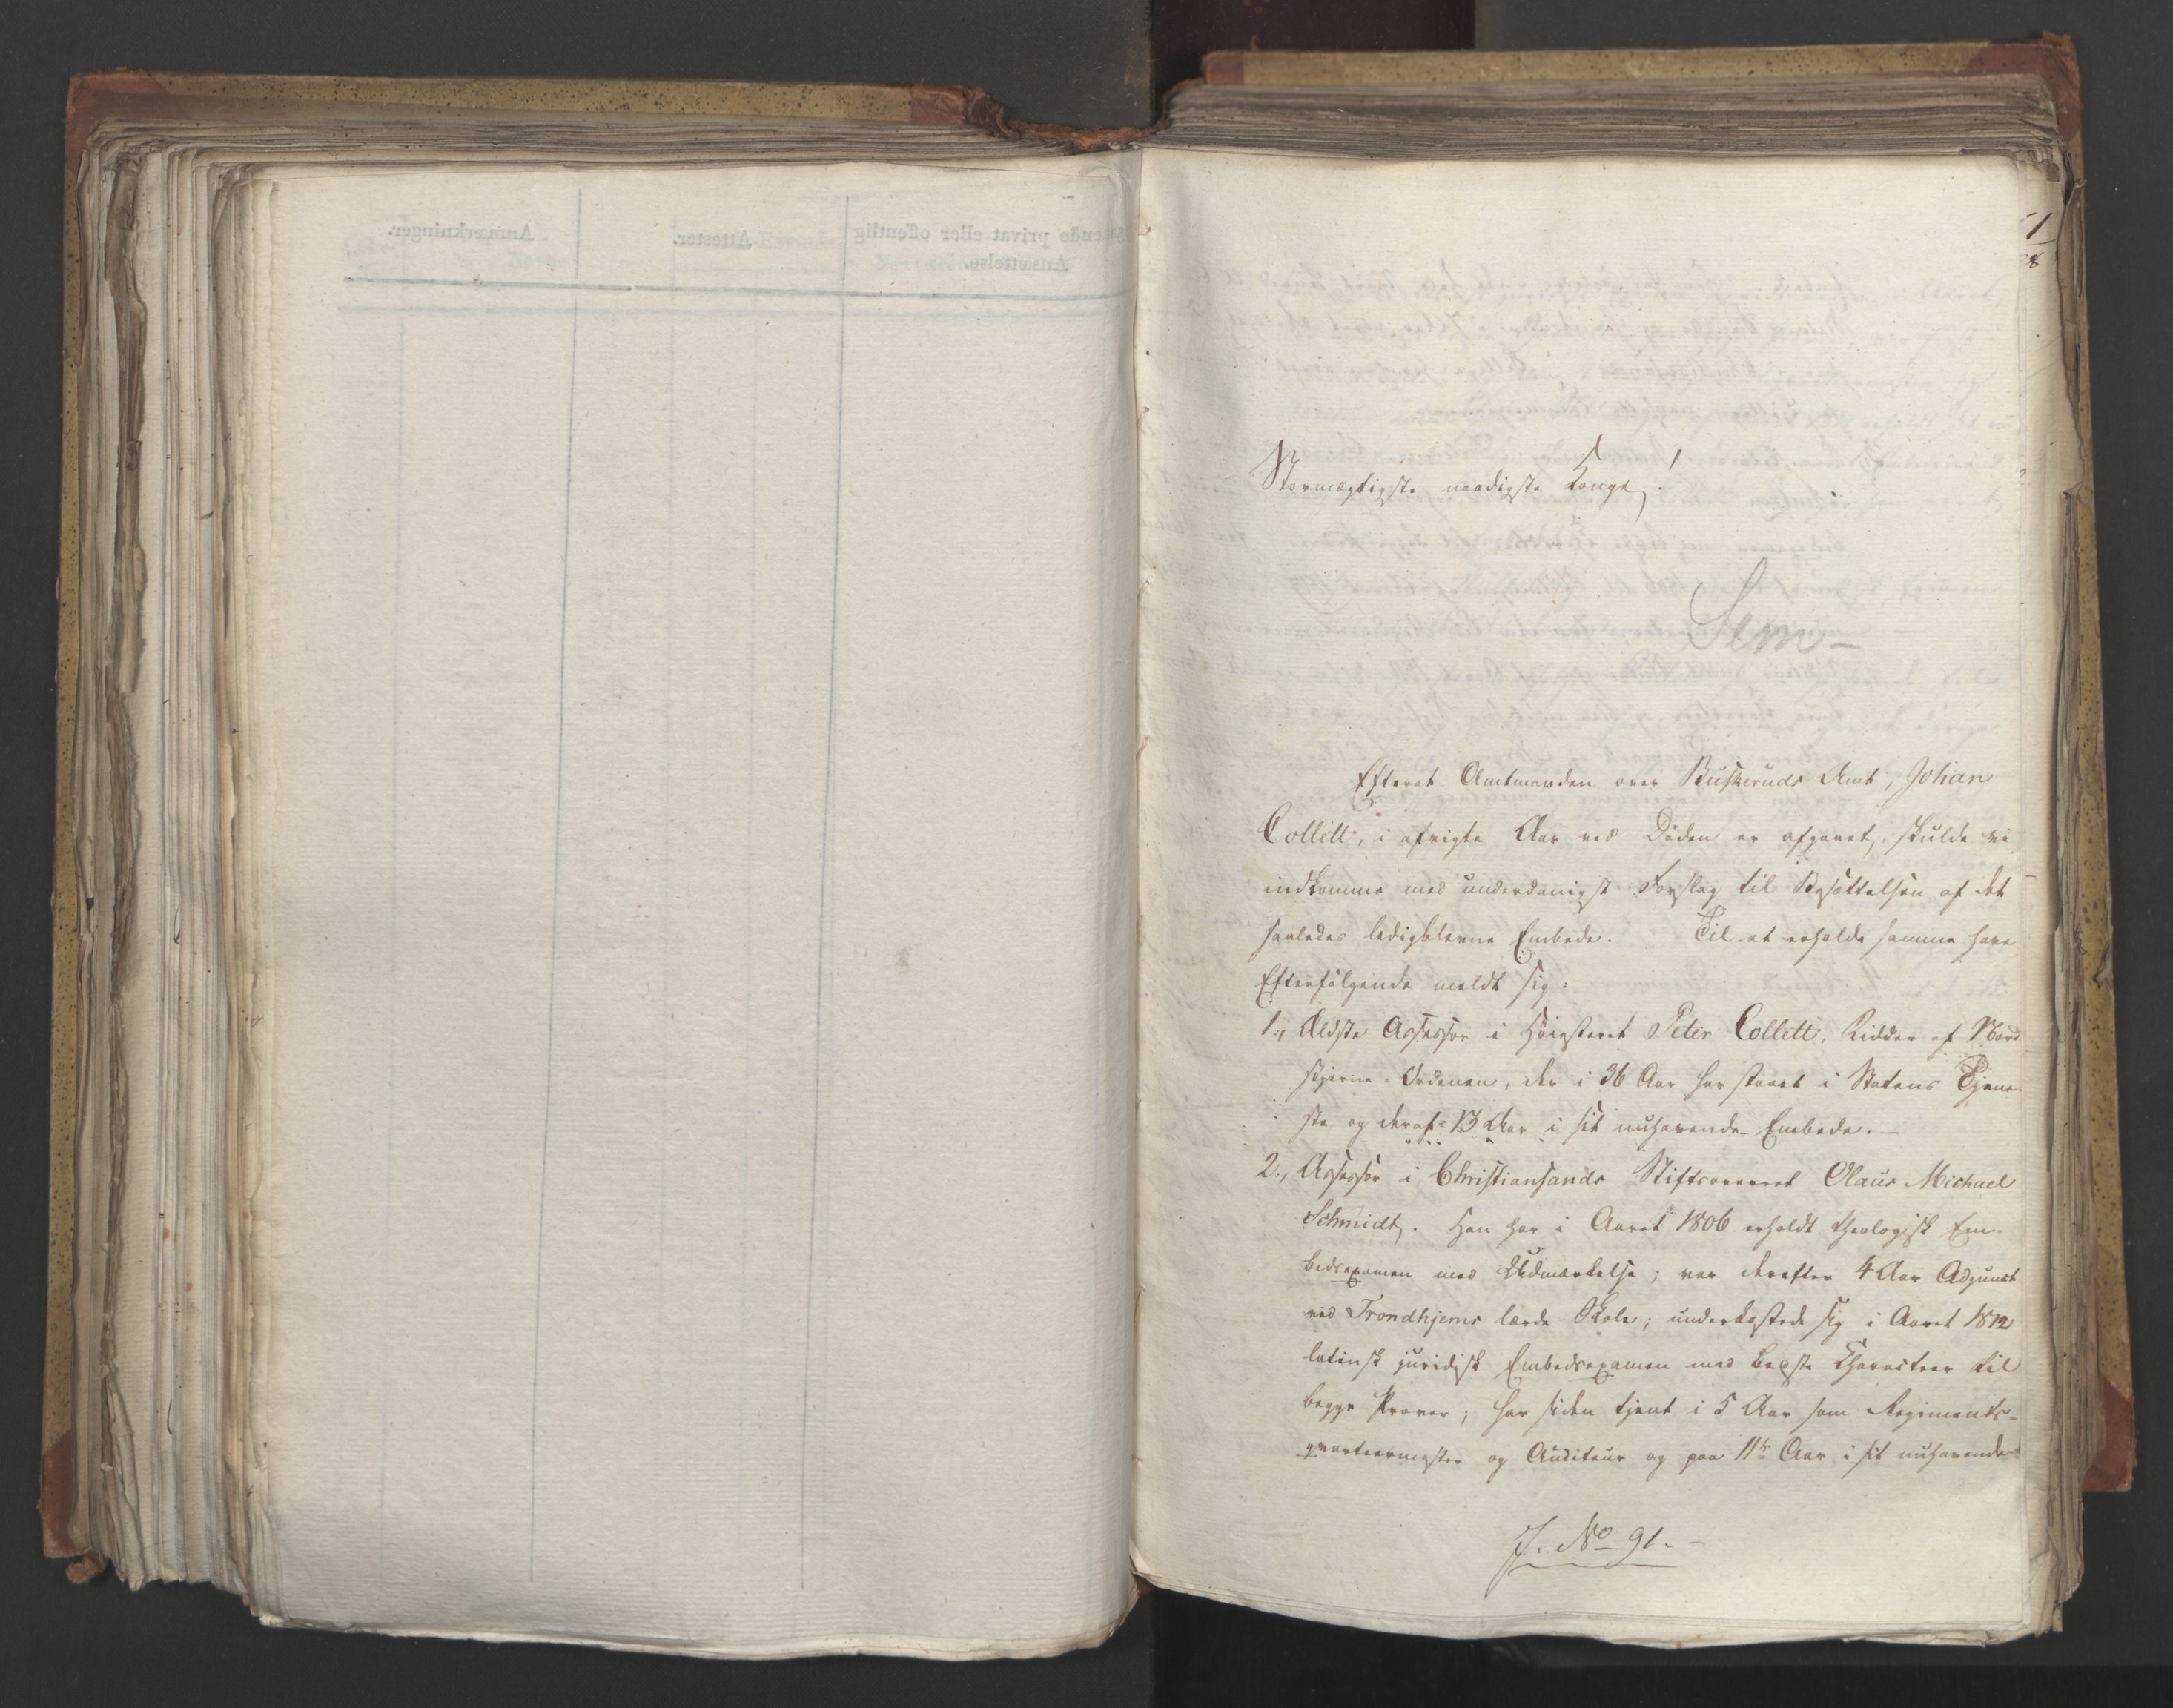 Stormægtigste naadigste Konge!
Sem –
Efterat Amtmanden over Buskeruds Amt, Johan
Collett, i afvigte Aar ved Døden er afgaaet, skulde vi
indkomme med underdanigst Forslag til Besættelsen af det
saaledes ledigblevne Embede. Til at erholde samme have
Efterfølgende meldt sig:
1., Ældste Assessor i Høiesteret Peter Collett, Ridder af Nord
stjerne-Ordenen, der i 36 Aar har staaet i Statens Tjene
ste og deraf 13 Aar i sit nuhavende Embede. –
2., Assessor i Christiansands Stiftsoverret Olaus Michael
Schmidt. Han har i Aaret 1806 erholdt theologisk Em-
bedsexamen med Udmærkelse; var derefter 4 Aar Adjunct
ved Trondhjems lærde Skole; underkastede sig i Aaret 1812
latinsk juridisk Embedsexamen med bedste Characteer til
begge Prøver; har siden tjent i 5 Aar som Regiments-
qvarteermester og Auditeur og paa 11te Aar i sit nuhavende
J. No 91. –
Anmærkninger.
Attester.
ende privat eller offentlig
Ansættelse.